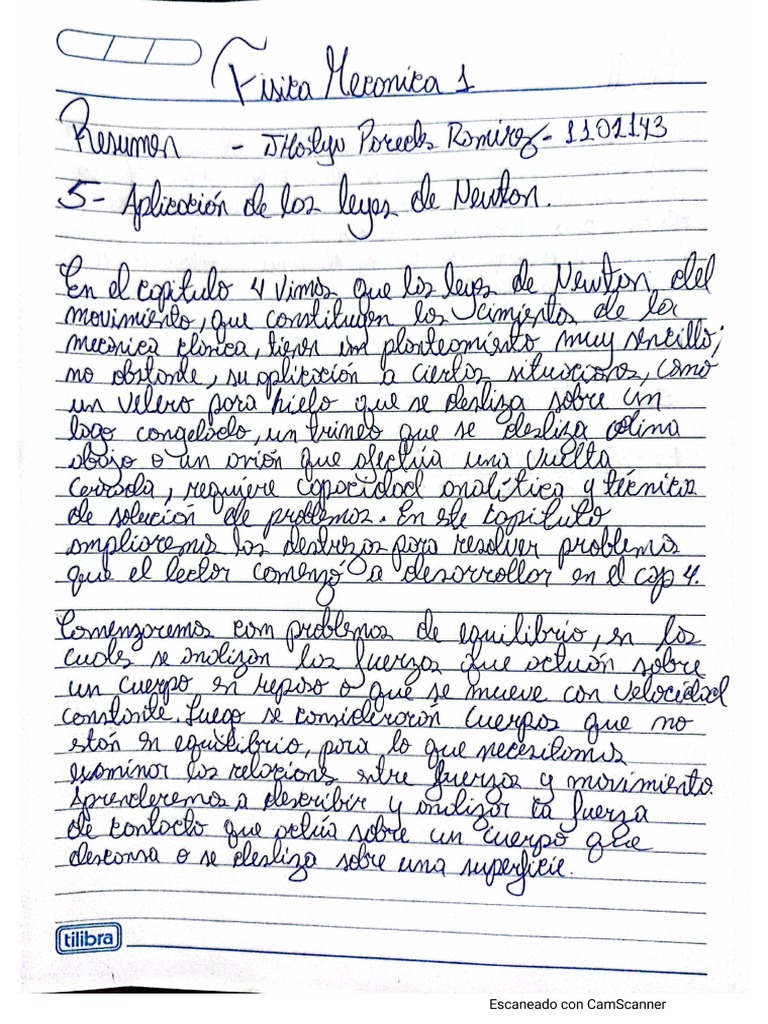 Física Mecanica 1
Resumen - Jhoslyn Paredes Ramirez - 1101143
5- Aplicación de las leyes de Newton.
En el capitulo 4 vimos que las leyes de Newton del
movimiento, que constituyen los cimientos de la
mecánica clásica, tienen un planteamiento muy sencillo;
no obstante, su aplicación a ciertas situaciones, como
un velero para hielo que se desliza sobre un
lago congelado, un trineo que se desliza colina
abajo o un avión que efectúa una vuelta
cerrada, requiere capacidad analítica y técnica
de solución de problemas. En este capitulo
ampliaremos las destrezas para resolver problemas
que el lector comenzó a desarrollar en el cap 4.
Comenzaremos com problemas de equilibrio, en los
cuales se analizan las fuerzas que actuán sobre
un cuerpo en reposo o que se mueve con velocidad
constante. Luego se considerarán cuerpos que no
están en equilibrio, para lo que necesitamos
examinar las relaciones entre fuerzas y movimiento.
Aprenderemos a describir y analizar la fuerza
de contacto que actúa sobre un cuerpo que
descansa o se desliza sobre una superficie.
tilibra
Escaneado con CamScanner